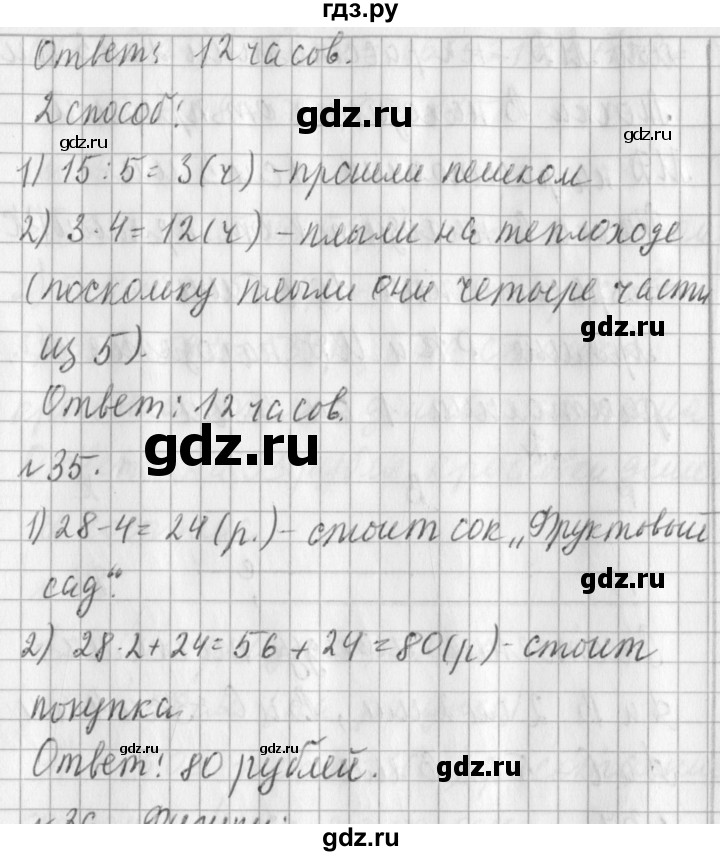 гдз.ру
Ответ: 12 часов.
2 способ:
gdz.ru
gdz.ru
gdz.ru
1) 15:5=3(ч) - прошли пешком
2) 3·4=12(ч) - плыли на теплоходе
(поскольку плыли они четыре части
gdz.ru
из 5).
Ответ: 12 часов.
gdz.ru
№35.
1) 28-4=24(р.) - стоит сок „Фруктовый
сад“.
gdz.ru
2) 28·2+24=56+24=80(р) - стоит
покупка.
gdz.ru
gdz.ru
Ответ: 80 рублей.
gdz.ru
gdz.ru